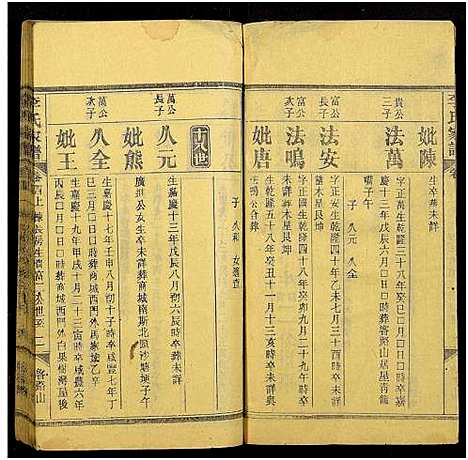 李氏家譜
貴公
三子
法萬
字正萬生乾隆三十八年癸
嘉慶十三年戊辰六月
子 八元 八全
妣陳
生卒葬未詳
富公
長子
法安
字正安生乾隆四十年乙未七月三十酉時卒
未詳木星艮坤
富公
次子
法鳴
字正鳴生乾隆四十八年癸卯二月二十九午時卒
未詳木星艮坤
妣唐
生乾隆五十八年癸丑十一月十三亥時卒葬與
鳴公合葬
子 八和 女適查
十八世
萬公
長子
八元
生嘉慶十三年戊辰八月初六辰時卒葬未詳
妣熊
廣坦公女生卒未詳葬商城南斯北
萬公
次子
八全
生嘉慶十七年壬申八月初十子時卒咸豐七年丁
巳三月口口日口時葬商城西門外
妣王
生嘉慶十九年甲戌十月二十二寅時卒咸豐六年
丙辰口月口日口時葬西門外白果樹灣屋後
李氏家譜